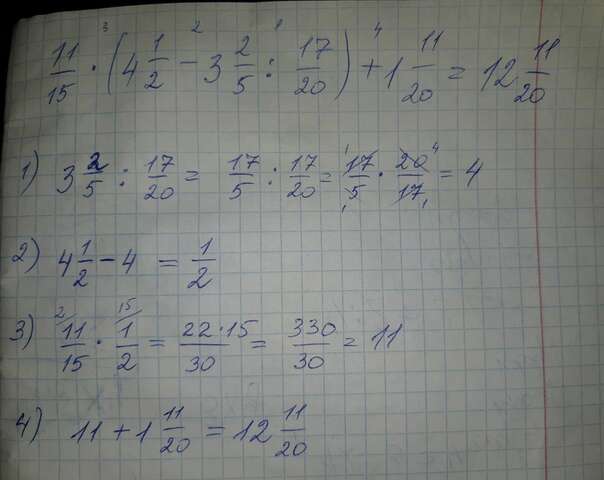 3 2 1 4
11/15 · (4 1/2 - 3 2/5 : 17/20) + 1 11/20 = 12 11/20
1) 3 2/5 : 17/20 = 17/5 : 17/20 = 17/5 · 20/17 = 4
2) 4 1/2 - 4 = 1/2
3) 11/15 · 1/2 = 22·15/30 = 330/30 = 11
4) 11 + 1 11/20 = 12 11/20